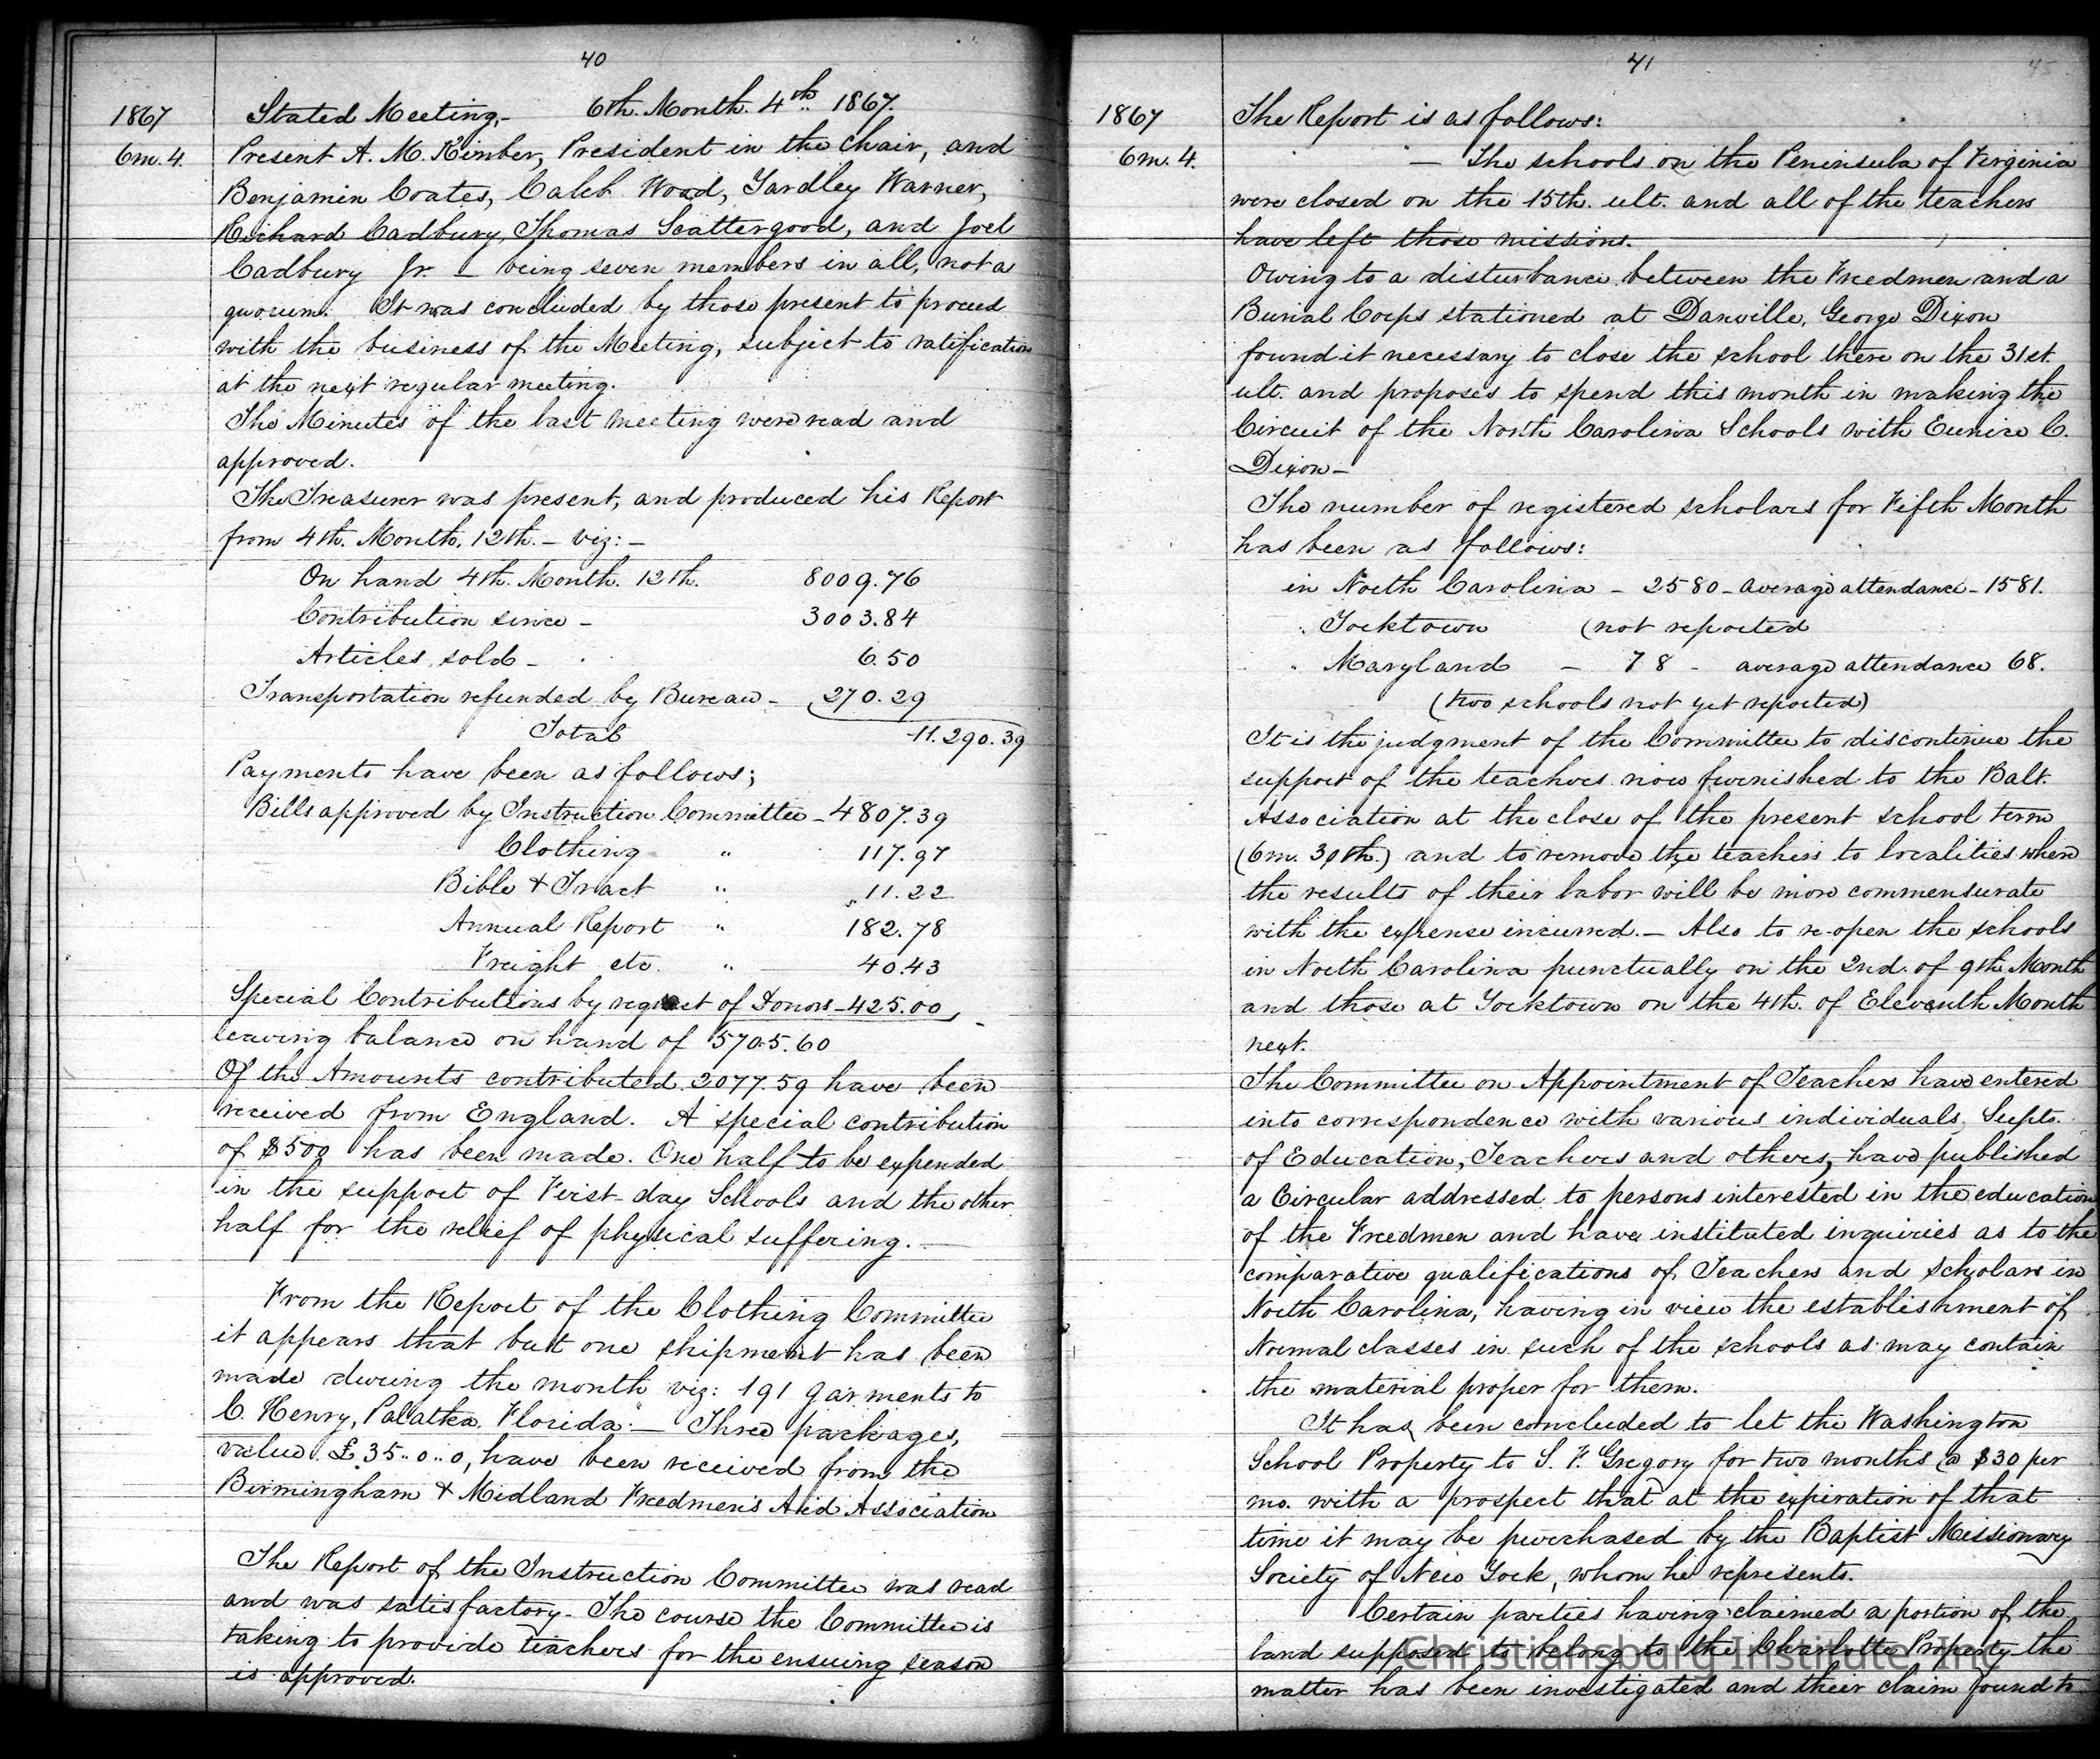 40
1867 Stated Meeting,- 6th. Month. 4th. 1867.
6m. 4. Present A. M. Kimber, President in the chair, and
Benjamin Coates, Caleb Wood, Yardley Warner,
Richard Cadbury, Thomas Scattergood, and Joel
Cadbury Jr. – being seven members in all, not a
quorum. It was concluded by those present to proceed
with the business of the Meeting, subject to ratification
at the next regular meeting.
The Minutes of the last meeting were read and
approved.
The Treasurer was present, and produced his Report
from 4th. Month, 12th. – viz: –
On hand 4th. Month. 12th. 8009.76
Contribution since – 3003.84
Articles sold – 6.50
Transportation refunded by Bureau – 270.29
Total 11.290.39
Payments have been as follows;
Bills approved by Instruction Committee – 4807.39
Clothing " 117.97
Bible & Tract " 11.22
Annual Report " 182.78
Freight etc. " 40.43
Special Contributions by request of Donors – 425.00
leaving balance on hand of 5705.60
Of the Amounts contributed 2077.59 have been
received from England. A special contribution
of $500 has been made. One half to be expended
in the support of First-day Schools and the other
half for the relief of physical suffering. –
From the Report of the Clothing Committee
it appears that but one shipment has been
made during the month viz: 191 garments to
C. Henry, Palatka, Florida. – Three packages,
value £35..0..0, have been received from the
Birmingham & Midland Freedmen's Aid Association
The Report of the Instruction Committee was read
and was satisfactory – The course the Committee is
taking to provide teachers for the ensuing season
is approved.
41
45
1867 The Report is as follows:
6m. 4. – The schools on the Peninsula of Virginia
were closed on the 15th. ult. and all of the teachers
have left those missions.
Owing to a disturbance between the Freedmen and a
Burial Corps stationed at Danville, George Dixon
found it necessary to close the school there on the 31st.
ult. and proposes to spend this month in making the
Circuit of the North Carolina Schools with Eunice C.
Dixon –
The number of registered scholars for Fifth Month
has been as follows:
in North Carolina – 2580 – average attendance – 1581.
" Yorktown (not reported
" Maryland – 78 – average attendance 68.
(two schools not yet reported)
It is the judgment of the Committee to discontinue the
support of the teachers now furnished to the Balt.
Association at the close of the present school term
(6m. 30th.) and to remove the teachers to localities where
the results of their labor will be more commensurate
with the expense incurred. – Also to re-open the schools
in North Carolina punctually on the 2nd. of 9th Month
and those at Yorktown on the 4th. of Eleventh Month
next.
The Committee on Appointment of Teachers have entered
into correspondence with various individuals, Supts.
of Education, Teachers and others, have published
a Circular addressed to persons interested in the education
of the Freedmen and have instituted inquiries as to the
comparative qualifications of Teachers and scholars in
North Carolina, having in view the establishment of
Normal classes in such of the schools as may contain
the material proper for them.
It has been concluded to let the Washington
School Property to S. F. Gregory for two months @ $30 per
mo. with a prospect that at the expiration of that
time it may be purchased by the Baptist Missionary
Society of New York, whom he represents.
Certain parties having claimed a portion of the
land supposed to belong to the Charlotte Property the
matter has been investigated and their claim found to
Christiansburg Institute, Inc